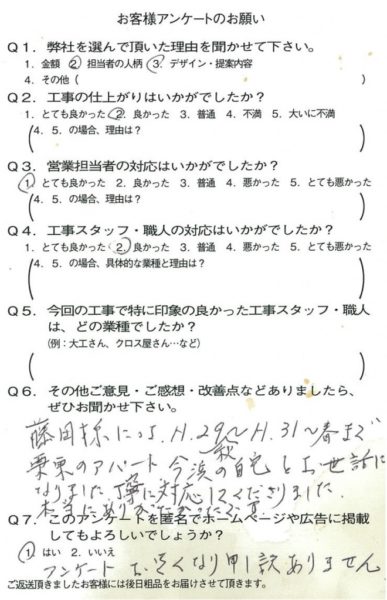 お客様アンケートのお願い
Q1．弊社を選んで頂いた理由を聞かせて下さい。
1．金額 2．担当者の人柄 3．デザイン・提案内容
4．その他（ ）
Q2．工事の仕上がりはいかがでしたか？
1．とても良かった 2．良かった 3．普通 4．不満 5．大いに不満
4．5．の場合、理由は？
Q3．営業担当者の対応はいかがでしたか？
1．とても良かった 2．良かった 3．普通 4．悪かった 5．とても悪かった
4．5．の場合、理由は？
Q4．工事スタッフ・職人の対応はいかがでしたか？
1．とても良かった 2．良かった 3．普通 4．悪かった 5．とても悪かった
4．5．の場合、具体的な業種と理由は？
Q5．今回の工事で特に印象の良かった工事スタッフ・職人
は、どの業種でしたか？
（例：大工さん、クロス屋さん…など）
Q6．その他ご意見・ご感想・改善点などありましたら、
ぜひお聞かせ下さい。
藤田様には、H.29〜H.31〜春まで
栗東のアパート 今浜の自宅とお世話に
なりました。丁寧に対応してくださりました。
本当にありがとうございます
Q7．このアンケートを匿名でホームページや広告に掲載
してもよろしいでしょうか？
1．はい 2．いいえ
アンケートお遅くなり申し訳ありません
ご返送頂きましたお客様には後日粗品をお届けさせて頂きます。